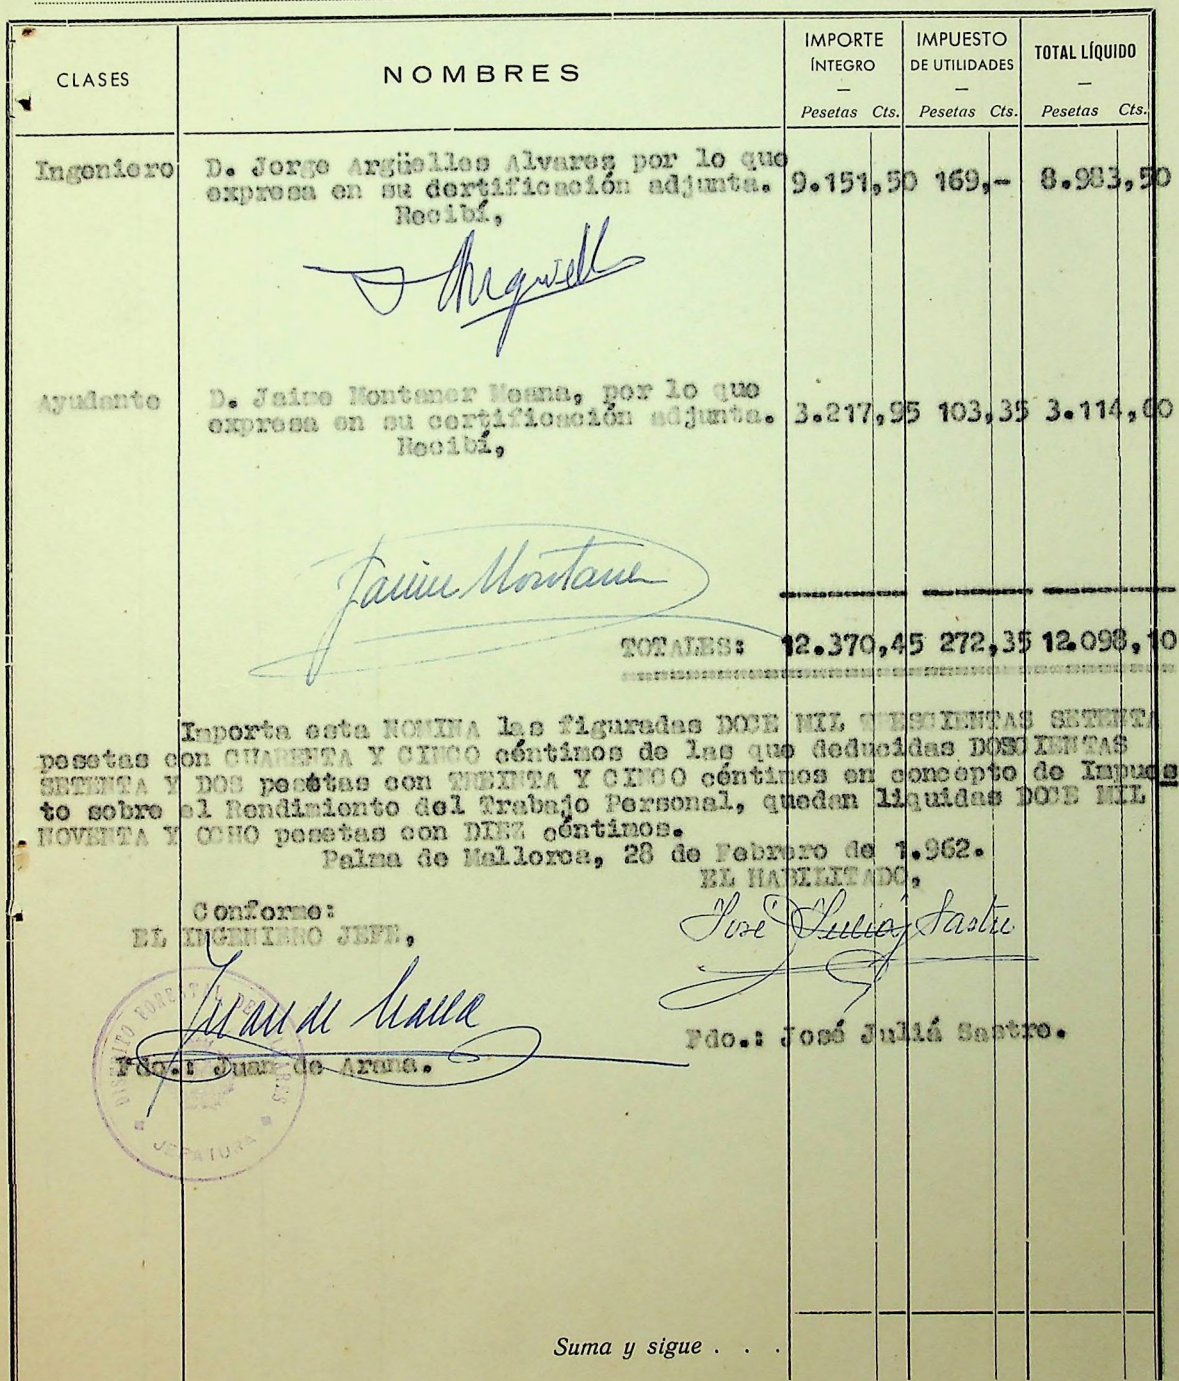 CLASES
NOMBRES
IMPORTE
ÍNTEGRO
—
Pesetas Cts.
IMPUESTO
DE UTILIDADES
—
Pesetas Cts.
TOTAL LÍQUIDO
—
Pesetas Cts.
Ingeniero D. Jorge Argüelles Alvares por lo que
expresa en su dertificación adjunta. 9.151,50 169,- 8.983,50
Recibí,
Ayudante D. Jaime Montaner Moana, por lo que
expresa en su certificación adjunta. 3.217,95 103,35 3.114,60
Recibí,
Jaime Montaner
TOTALES: 12.370,45 272,35 12.098,10
Importa esta NOMINA las figuradas DOCE MIL TRESCIENTAS SETENTA
pesetas con CUARENTA Y CINCO céntimos de las que deducidas DOSCIENTAS
SETENTA Y DOS pesetas con TREINTA Y CINCO céntimos en concepto de Impues
to sobre el Rendimiento del Trabajo Personal, quedan liquidas DOCE MIL
NOVENTA Y OCHO pesetas con DIEZ céntimos.
Palma de Mallorca, 28 de Febrero de 1.962.
EL HABILITADO,
Conforme:
EL INGENIERO JEFE,
José Juliá Sastre
Juan de Arana
Fdo.: José Juliá Sastre.
Fdo.: Juan de Arana.
DISTRITO FORESTAL DE BALEARES
JEFATURA
Suma y sigue . . .